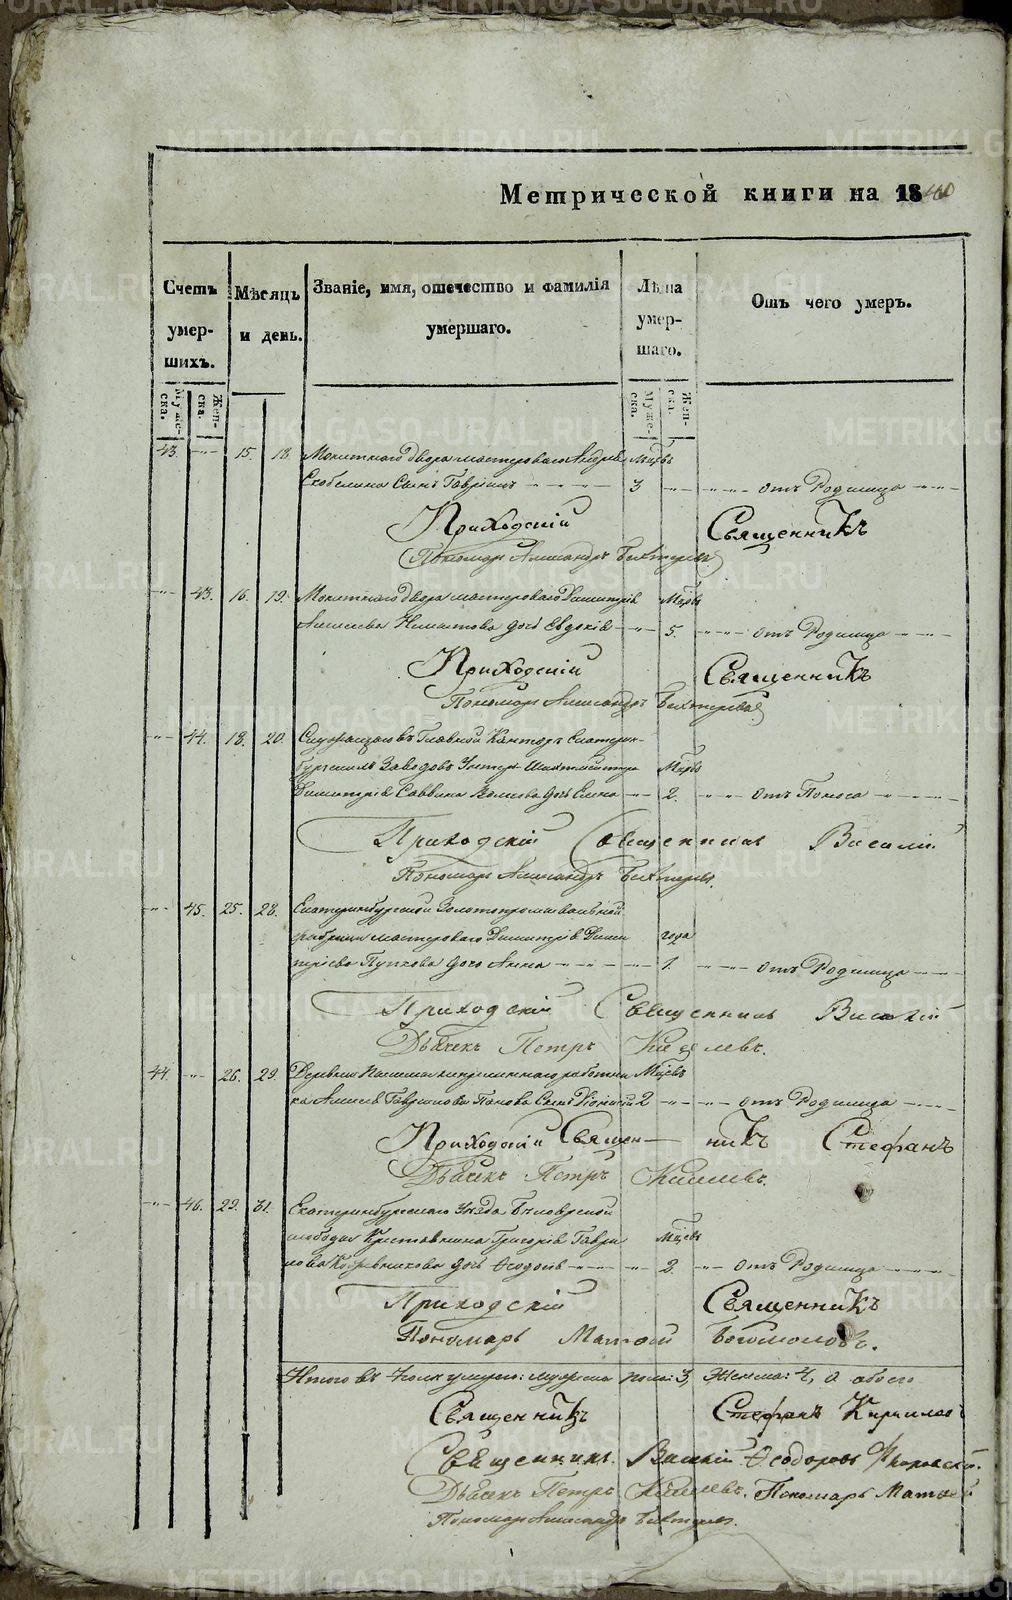 Метрической книги на 1840
Счетъ умершихъ.
Мѣсяцъ и день.
Званіе, имя, отечество и фамилія умершаго.
Лѣта умершаго.
Отъ чего умеръ.
Мужеска.
Женска.
Мужеска.
Женска.
43. 15 18 Монетнаго двора мастероваго Андрея Мцвъ
Скобелина сынъ Гавріилъ 3 отъ Родимца
Приходскій Священникъ
Пономарь Александръ Бехтеревъ
43. 16. 19. Монетнаго двора мастероваго Димитрія Мцвъ
дочь Евдокія 5. отъ Родимца
Приходскій Священникъ
Пономарь Александръ Бехтеревъ
44. 18. 20. Служащаго въ Главной Конторѣ Екатерин-
бургскихъ Заводовъ Унтеръ Шихтмейстера Мцвъ
Димитрія Саввина дочь Елена 2. отъ Поноса
Приходскій Священникъ Василій
Пономарь Александръ Бехтеревъ.
45. 25. 28. Екатеринбургской Золотопромывальной
фабрики мастероваго Димитрія Дими года
тріева Пупкова дочь Анна 1. отъ Родимца
Приходскій Священникъ Василій
Дьячекъ Петръ Киселевъ.
44. 26. 29. Деревни работни Мцвъ
ка Алексѣя Гаврилова Панова сынъ 2 отъ Родимца
Приходскій Священникъ Стефанъ
Дьячекъ Петръ Киселевъ.
46. 29. 31. Екатеринбургскаго Уѣзда
слободы Крестьянина Григорія Гаври Мцвъ
лова дочь Ѳеодосія 2. отъ Родимца
Приходскій Священникъ
Пономарь Матѳей Богомоловъ.
Итого въ Іюлѣ умерло: мужеска пола: 3, Женска: 4, а обоего
Священникъ Стефанъ Кирилловъ
Священникъ Василій Ѳеодоровъ
Дьячекъ Петръ Киселевъ. Пономарь Матѳей
Пономарь Александръ Бехтеревъ.
METRIKI.GASO-URAL.RU